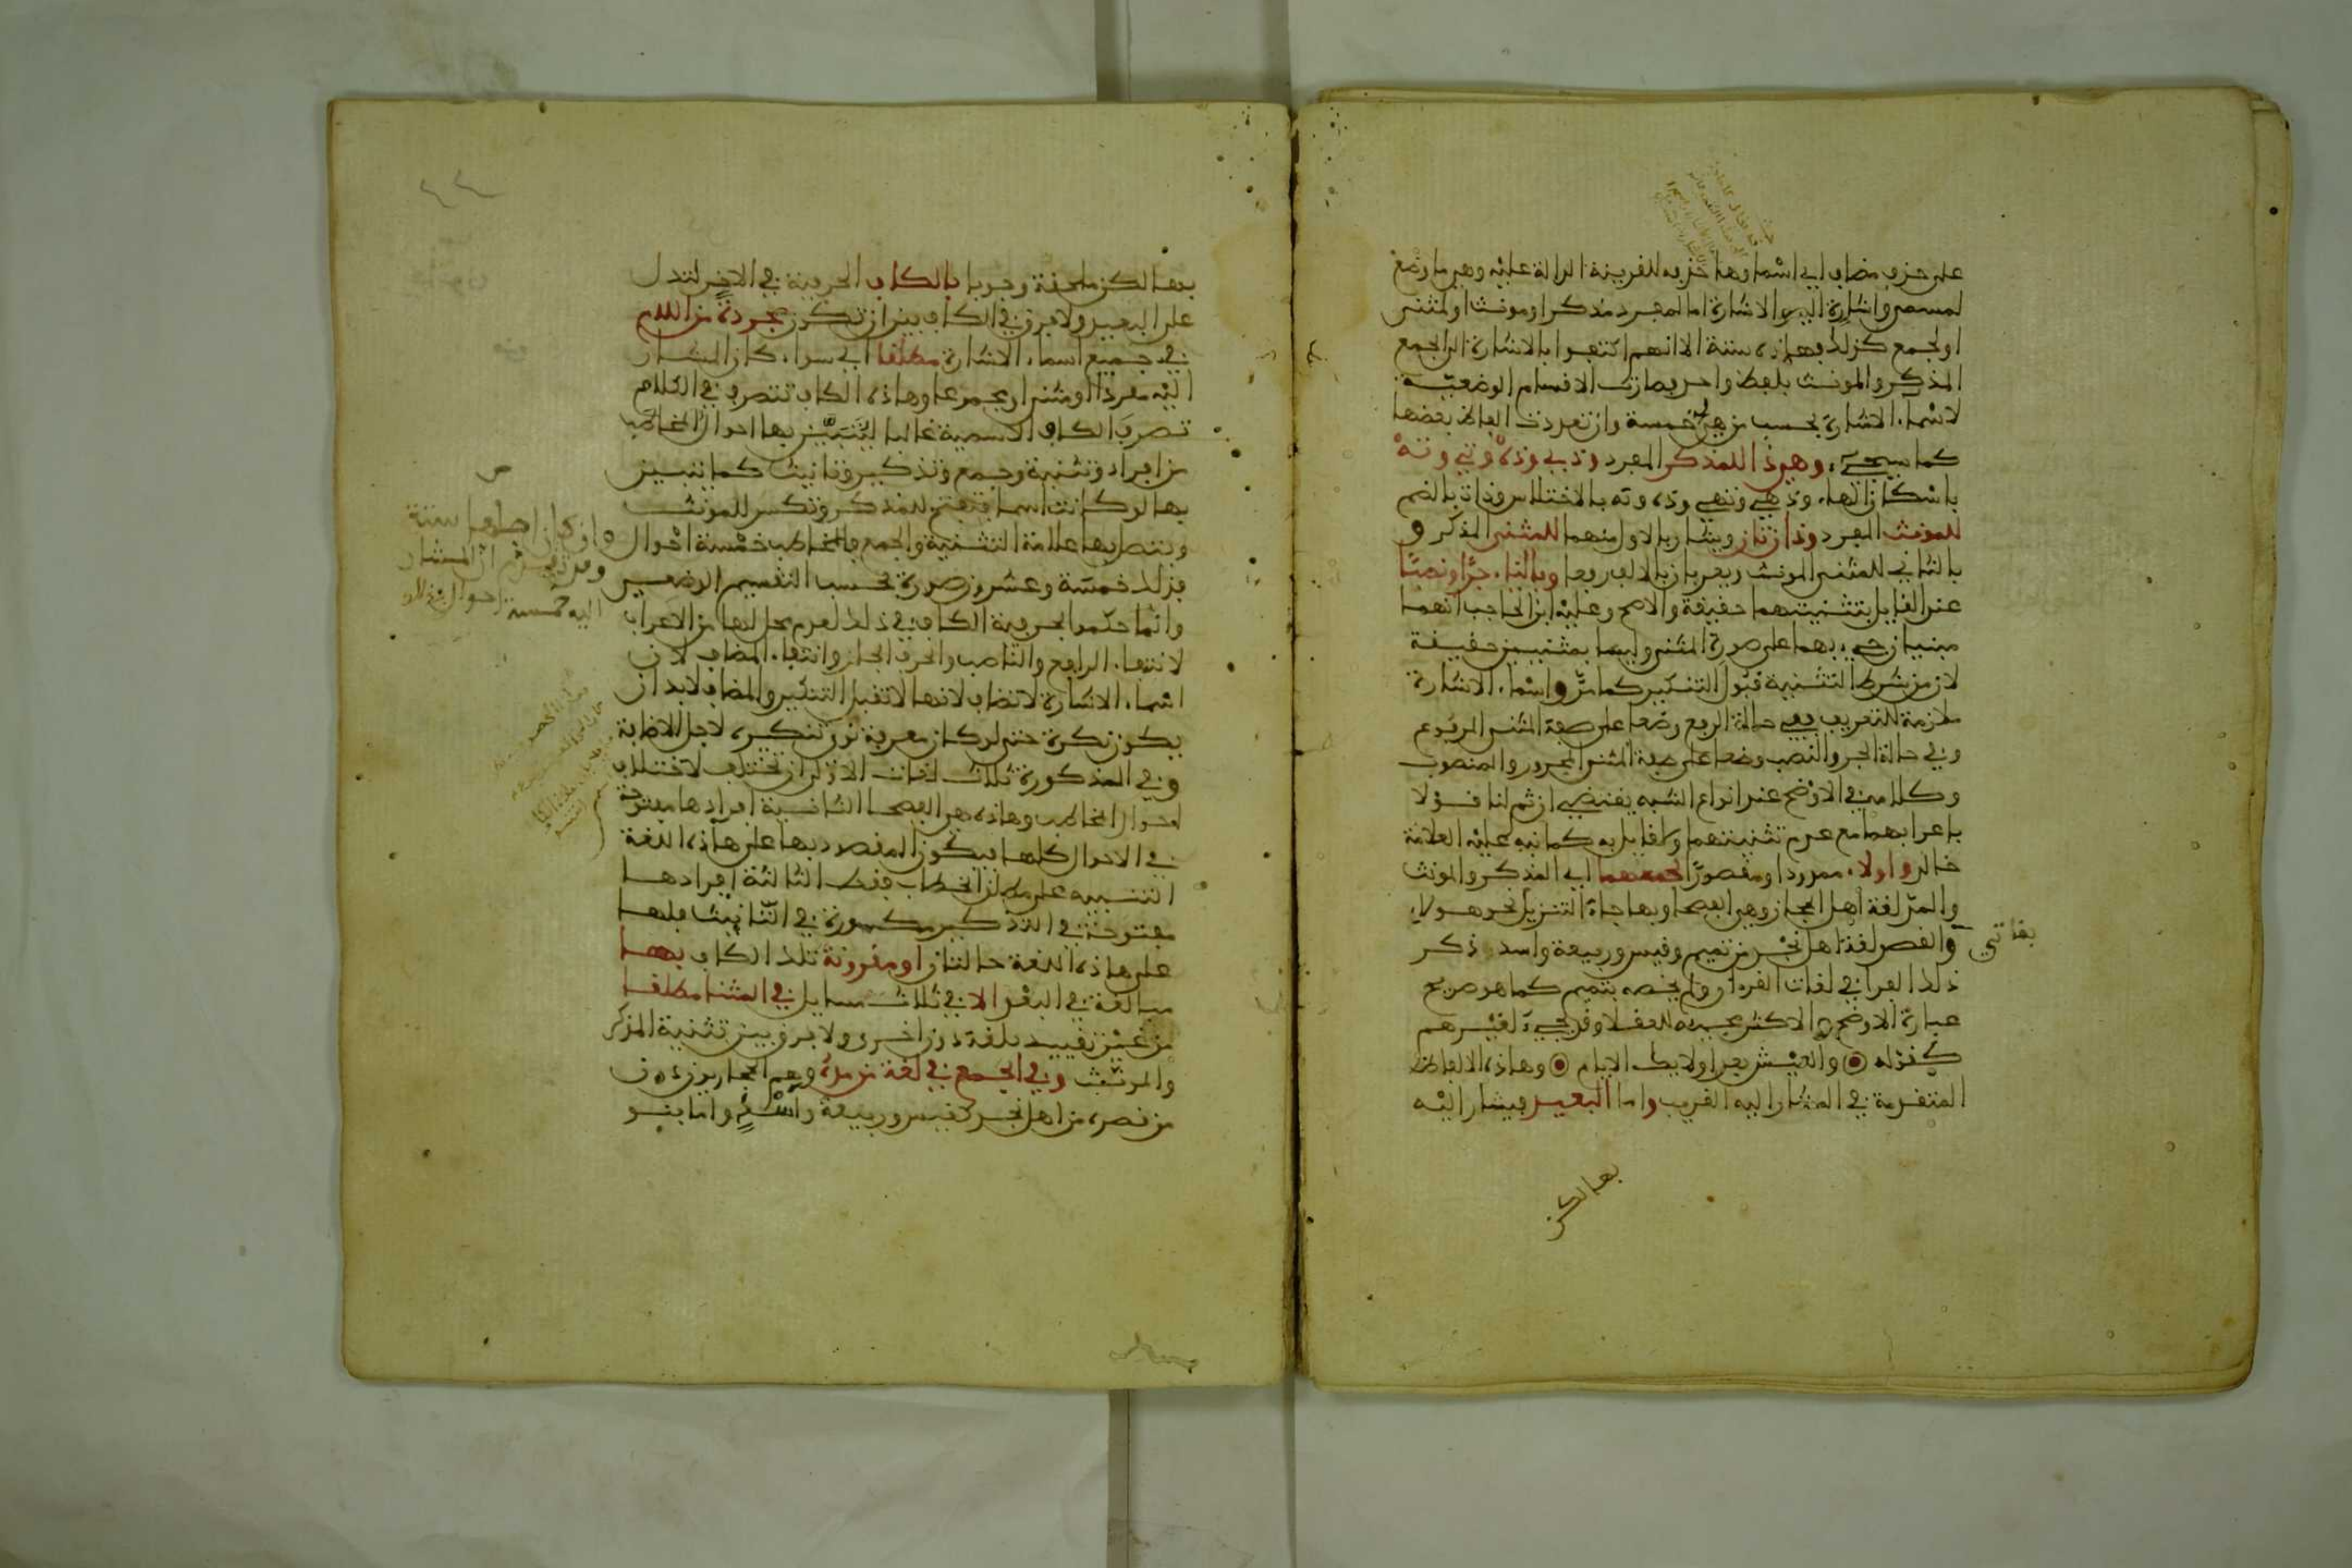 على حذف مضاف اي اسما وها حذفه للقرينة الدالة عليه وهي ما وضع
لمسمى واشارة اليه والاشارة اما لمفرد مذكر او مونث او لمثنى
او لجمع كذلك فهاذه ستة الا انهم اكتفوا بالاشارة الى الجمع
المذكر والمونث بلفظ واحد فصارت الاقسام الوضعية
لاسماء الاشارة بحسب من هي له خمسة وان تعددت الفاظ بعضها
كما سيجيء وهي ذا للمذكر المفرد وذي وذه وتي وته
باسكان الهاء وذهي وتهي وذه وته بالاختلاس وذات بالضم
للمونث المفرد وذان وتان ويشار بالاول منهما للمثنى المذكر و
بالثاني للمثنى المونث ويعربان بالالف رفعا وبالياء جرا ونصبا
عند القايل بتثنيتهما حقيقة والاصح وعليه ابن الحاجب انهما
مبنيان جيء بهما على صورة المثنى وليسا بمثنيين حقيقة
لان من شرط التثنية قبول التنكير كما مر واسماء الاشارة
ملازمة للتعريف ففي حالة الرفع وضعا على صيغة المثنى المرفوع
وفي حالة الجر والنصب وضعا على صيغة المثنى المجرور والمنصوب
وكلامه في الاوضح عند انواع الشبه يقتضي ان ثم لنا قولا
باعرابهما مع عدم تثنيتهما ولا قايل به كما نبه عليه العلامة
خالد واولاء ممدودا ومقصورا لجمعهما اي المذكر والمونث
والمد لغة اهل الحجاز وهي الفصحا وبها جاء التنزيل نحو هولاء
بقاتي
والقصر لغة اهل نجد من تميم وقيس وربيعة واسد ذكر
ذلك الفرا في لغات القران ولم يخصه بتميم كما هو صريح
عبارة الاوضح والاكثر مجييه للعقلا وقد يجيء لغيرهم
كقوله والعيش بعد اولايك الايام وهاذه الالفاظ
المتقدمة في المشار اليه القريب واما البعيد فيشار اليه
بها لكن

بها لكن ملحقة وجوبا بالكاف الحرفية في الاخر لتدل
على البعيد ولا فرق في الكاف بين ان تكون مجردة من اللام
في جميع اسماء الاشارة مطلقا اي سواء كان المشار
اليه مفردا او مثنى او مجموعا وهاذه الكاف تتصرف في الكلام
تصرف الكاف الاسمية غالبا ليتبين بها احوال المخاطب
من افراد وتثنية وجمع وتذكير وتانيث كما تتبين
بها لو كانت اسما فتفتح للمذكر وتكسر للمونث
وتتصل بها علامة التثنية والجمع فالمخاطب خمسة احوال
فذلك خمسة وعشرون صورة بحسب التقسيم الوضعي
وانما حكموا بحرفية الكاف في ذلك لعدم محل لها من الاعراب
لانتفاء الرافع والناصب والحرف الجار وانتفاء المضاف لان
اسماء الاشارة لا تضاف لانها لا تقبل التنكير والمضاف لا بد ان
يكون نكرة حتى لو كان معرفة نوي تنكيره لاجل الاضافة
وفي المذكورة ثلاث لغات الاولى ان تختلف لاختلاف
احوال المخاطب وهاذه هي الفصحا الثانية افرادها مفتوحة
في الاحوال كلها فيكون المقصود بها على هاذه اللغة
التنبيه على مطلق الخطاب فقط الثالثة افرادها
مفتوحة في التذكير مكسورة في التانيث فلها
على هاذه اللغة حالتان او مقرونة تلك الكاف بها
مبالغة في البعد الا في ثلاث مسايل في المثنا مطلقا
من غير تقييد بلغة دون اخرى ولا فرق بين تثنية المذكر
والمونث وفي الجمع في لغة من مده وهم الحجازيون دون
من قصره من اهل نجد كقيس وربيعة واسد واما بنو

وان كان اصلها ستة
وقد تقدم ان المشار
اليه خمسة احوال